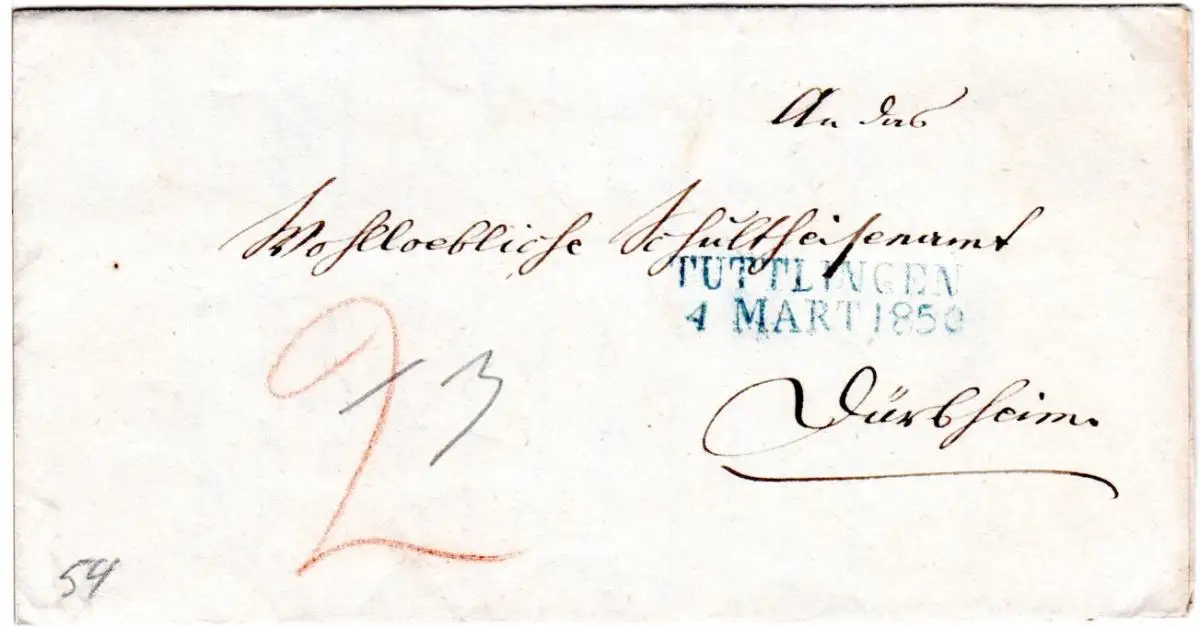 An das
Wohlloebliche Schultheisenamt
TUTTLINGEN
4 MART 1850
2 3
Dürbheim.
54